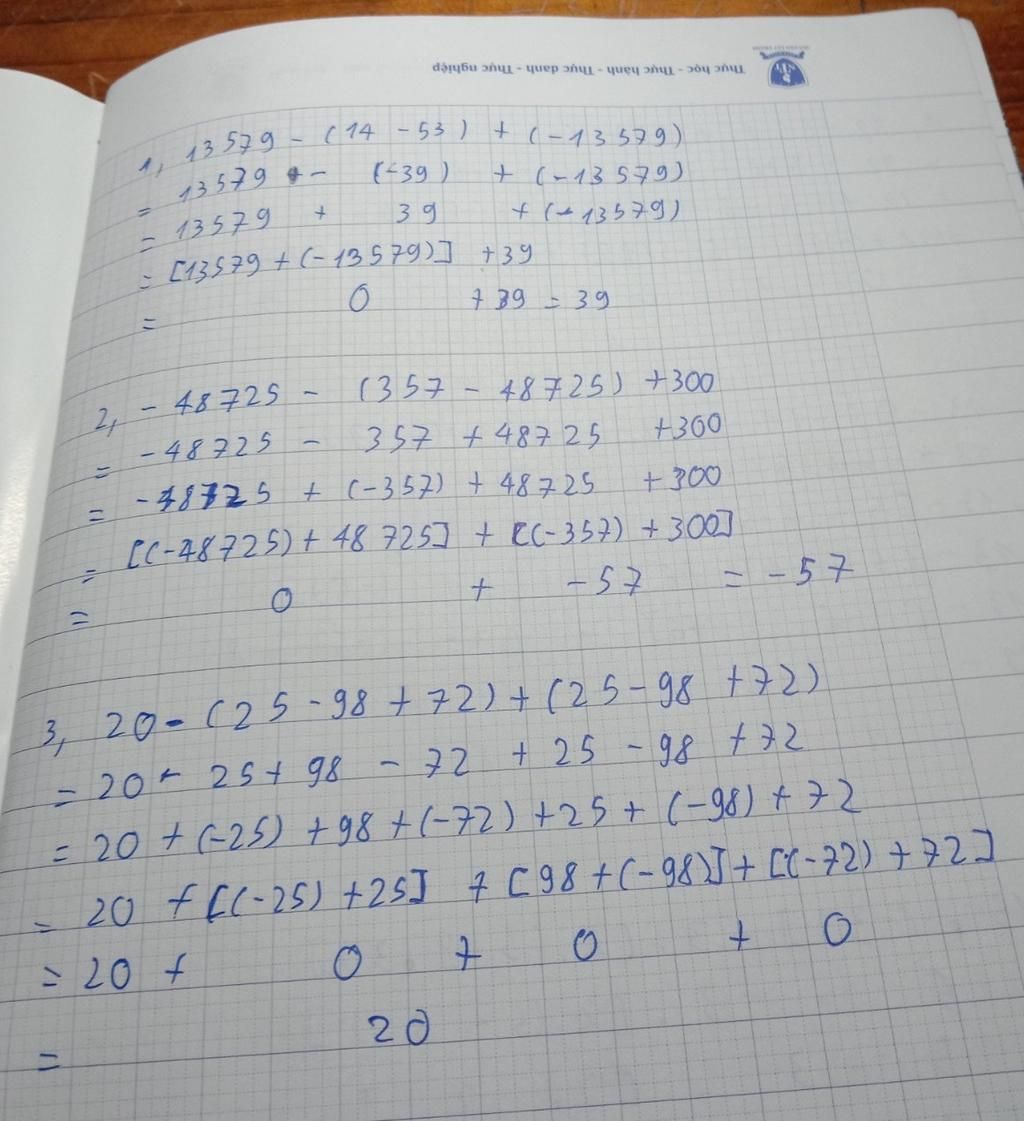 Thực học - Thực hành - Thực danh - Thực nghiệp
1, 13579 - (14 - 53) + (-13579)
= 13579 - (-39) + (-13579)
= 13579 + 39 + (-13579)
= [13579 + (-13579)] + 39
= 0 + 39 = 39
2, - 48725 - (357 - 48725) + 300
= -48725 - 357 + 48725 + 300
= -48725 + (-357) + 48725 + 300
= [(-48725) + 48725] + [(-357) + 300]
= 0 + -57 = -57
3, 20 - (25 - 98 + 72) + (25 - 98 + 72)
= 20 - 25 + 98 - 72 + 25 - 98 + 72
= 20 + (-25) + 98 + (-72) + 25 + (-98) + 72
= 20 + [(-25) + 25] + [98 + (-98)] + [(-72) + 72]
= 20 + 0 + 0 + 0
= 20